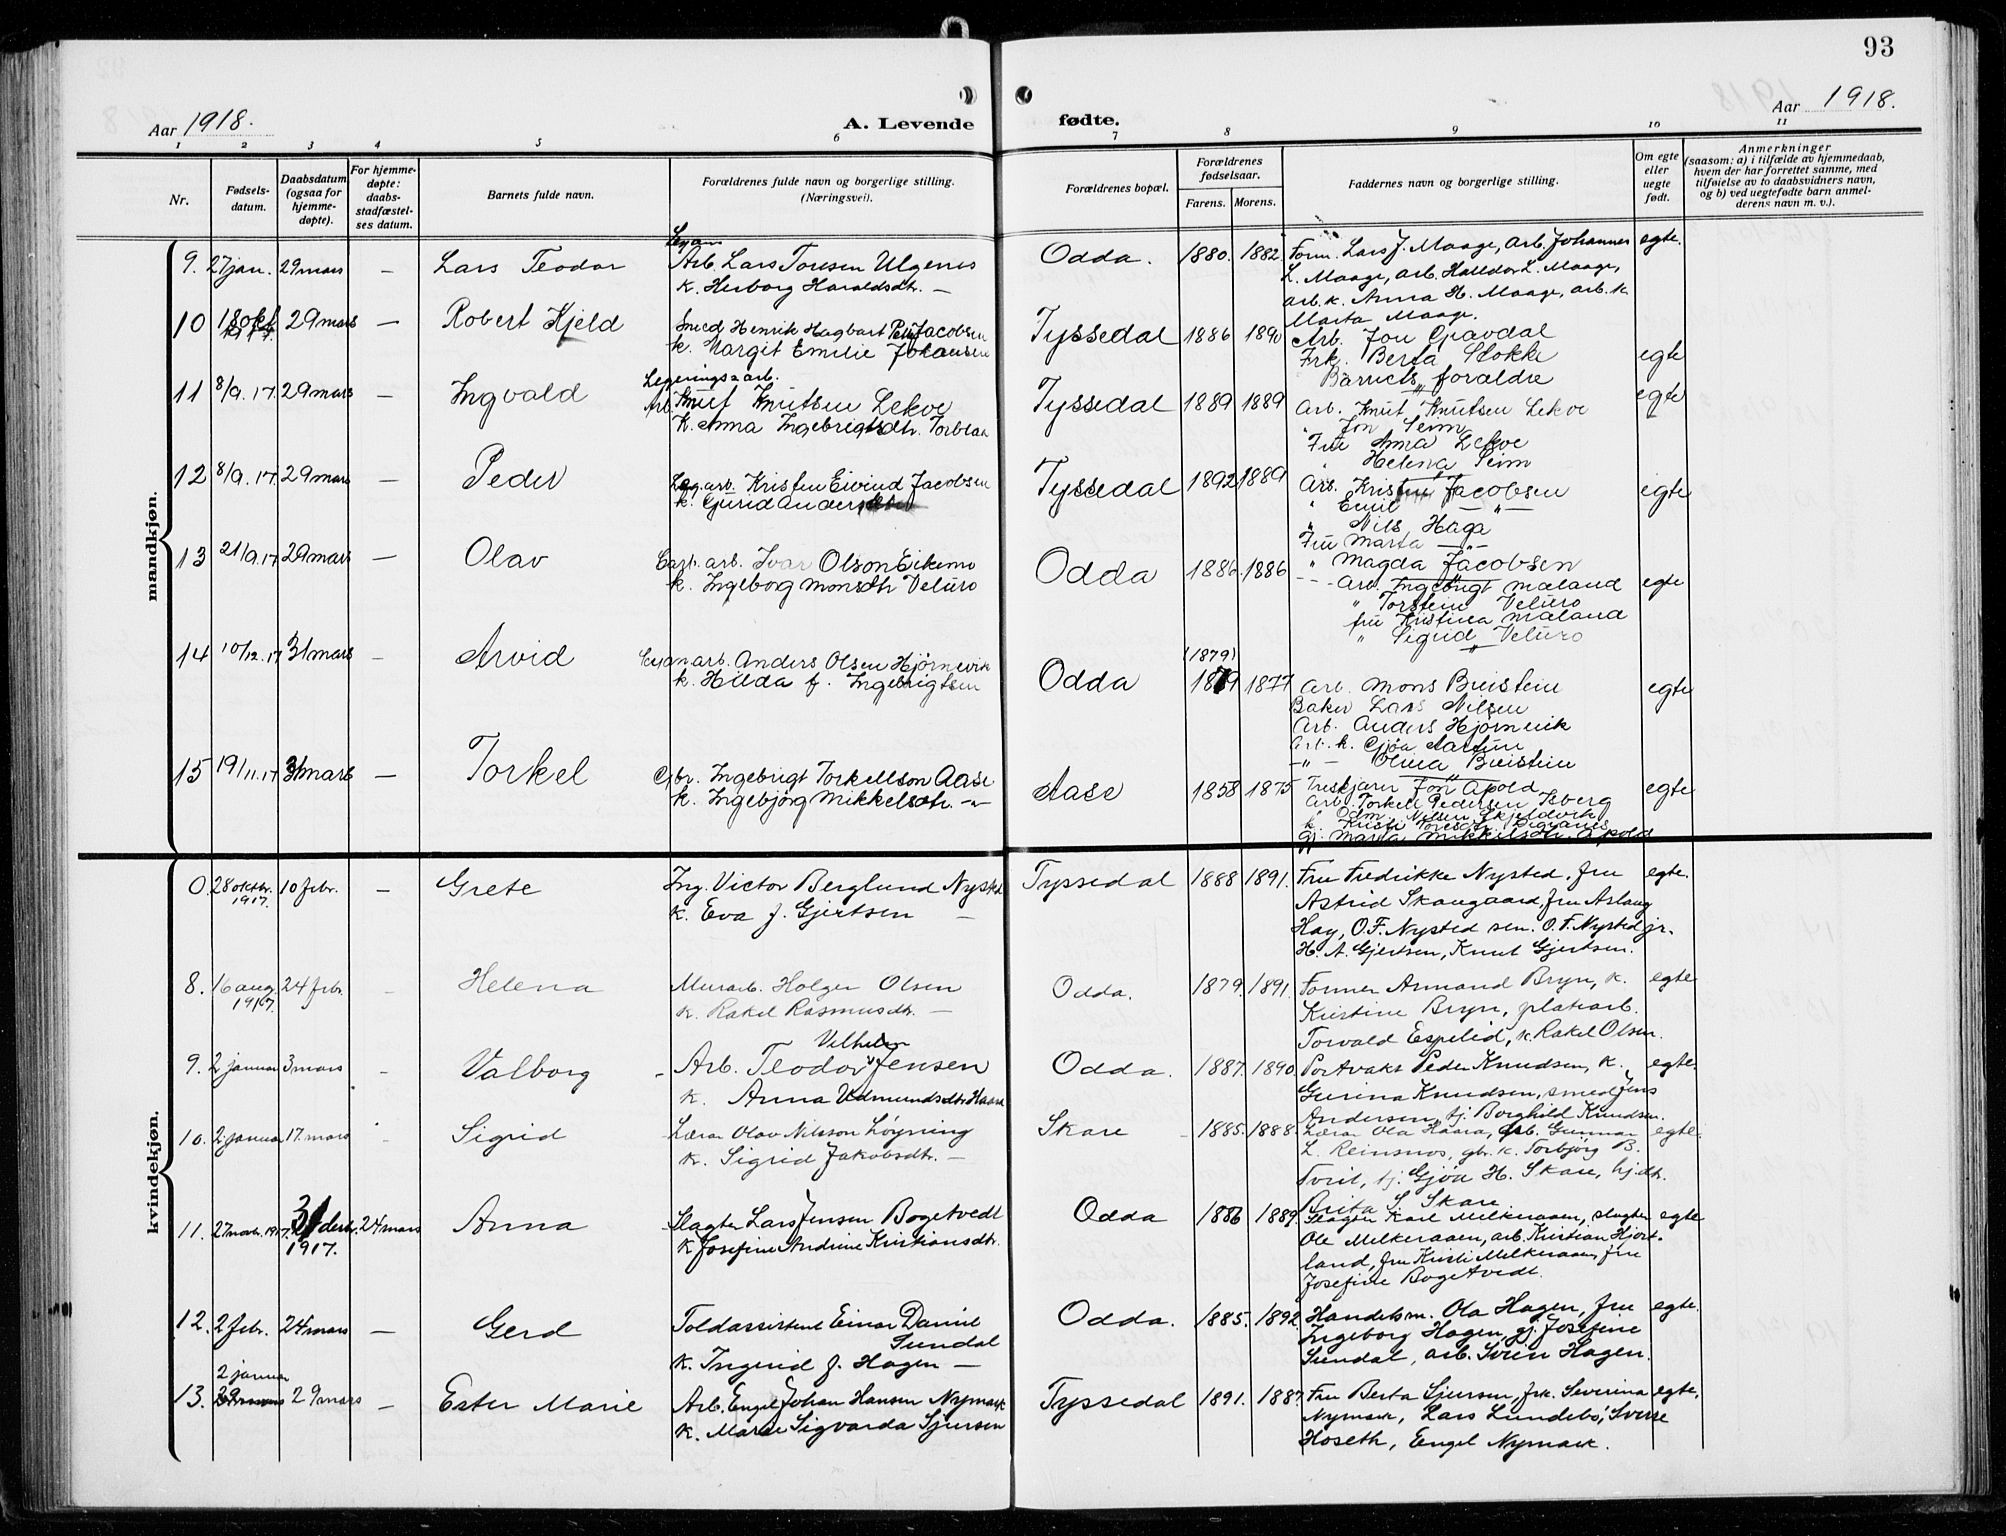 93
Aar 1918.
A. Levende
fødte.
Aar 1918.
1 2 3 4 5 6 7 8 9 10 11
Nr.
Fødsels-
datum.
Daabsdatum
(ogsaa for
hjemme-
døpte).
For hjemme-
døpte:
daabs-
stadfæstel-
ses datum.
Barnets fulde navn.
Forældrenes fulde navn og borgerlige stilling.
(Næringsvei).
Forældrenes bopæl.
Forældrenes
fødselsaar.
Farens. Morens.
Faddernes navn og borgerlige stilling.
Om egte
eller
uegte
født.
Anmerkninger
(saasom: a) i tilfælde av hjemmedaab,
hvem der har forrettet samme, med
tilføielse av to daabsvidners navn,
og b) ved uegtefødte barn anmel-
derens navn m. v.).
mandkjøn.
9. 27 jan. 29 mars — Lars Teodor
Arb. Lars Toresen Ulgenes
k. Herborg Haraldsdtr. —
Odda. 1880. 1882.
Form. Lars J. Maage, arb. Johannes
L. Maage, arb. Halldor L. Maage,
arb. k. Anna H. Maage, arb. k.
Marta Maage.
egte.
10 18 okt 1917. 29 mars — Robert Kjeld
Smed Henrik Hagbart Peter Jacobsen
k. Margit Emilie Johansen
Tyssedal 1886 1890
Arb. Jon Opavdal
Frk. Berta Stokke
Barnets foraldre
egte
11 8/9. 17. 29 mars — Ingvald
Legerings arb.
Arb. Knut Knutsen Lekve
K. Anna Ingebrigtsdtr. Torblaa
Tyssedal 1889 1889
Arb. Knut Knutsen Lekve
" Jon Seim
Fru Anna Lekve
" Helena Seim
egte
12 8/9. 17. 29 mars — Peder
Leg. arb. Kristen Eivind Jacobsen
k. Gurid Anders
Tyssedal 1892 1889
Arb. Kristen Jacobsen
" Emil — " —
" Nils Haga
Fru Marta — " —
" Magda Jacobsen
egte
13 21/9. 17 29 mars — Olav
Carb. arb. Ivar Olson Eikemo
k. Ingeborg Monsdtr Veluro
Odda 1886. 1886
Arb. Ingebrigt Mæland
" Torstein Veluro
fru Kristina Mæland
" Sigrid Veluro
egte
14 10/12. 17 31 mars - Arvid
Cyanarb. Anders Olsen Hjørnevik
k. Hilda f. Ingebrigtsen
Odda (1879) 1879 1877
Arb. Mons Breistein
Baker Lars Nilsen
Arb. Anders Hjørnevik
Arb. k. Gjøa
— " — Olina Breistein
egte
15 19/11. 17 31 mars — Torkel
Gbr. Ingebrigt Torkellson Aase
k. Ingebjørg Mikkelsdtr. — " —
Aase 1858 1875
Treskjærer Jon Apold
Arb. Torkell Pedersen Isberg
" Odm. Nilsen Skjeldvik
k. Kristi Toresdtr Digranes
gj. Marta Mikkelsdtr. Apold
egte
kvindekjøn.
0. 28 oktbr. 1917. 10 febr. — Grete
Ing. Victor Berglund Nysted
k. Eva f. Gjertsen —
Tyssedal 1888 1891.
Fru Fredrikke Nysted, fru
Astrid Skaugaard, fru Aslaug
Hay, O. F. Nysted sen. O. F. Nysted jr.
H. A. Gjertsen, Knut Gjertsen.
egte.
8. 16 aug. 1917. 24 febr. - Helena
Murarb. Holger Olsen
k. Rakel Rasmusdtr. —
Odda. 1879. 1891.
Former Armand Bryn, k.
Kristine Bryn, platearb.
Torvald Espelid, k. Rakel Olsen.
egte
9. 2 januar 3 mars - Valborg
Arb. Teodor Vilhelm Jensen
k. Anna Udmundsdtr. Haara
Odda. 1887. 1890.
Portvakt Peder Knudsen, k.
Gurina Knudsen, smed Jens
Andersen, tj. Borghild Knudsen.
egte.
10. 2 januar 17. mars - Sigrid
Lærar Olav Nilsson Løyning
k. Sigrid Jakobsdtr. —
Skare 1885. 1888.
Lærar Ola Haara, arb. Gunnar
L. Reinsnos, gbr. k. Torbjørg B.
Tvrit, tj. Gjøa H. Skare, hj.dtr.
Brita S. Skare
egte.
11. 27 novbr. 1917. 31 decbr. 1917. 24 mars Anna
Slagter Lars Jensen Bogetvedt
k Josefine Andrine Kristiansdtr.
Odda 1886 1889.
Slagter Karl Melkeraaen, slagter
Ole Melkeraaen, arb. Kristian Hjort-
land, fru Kristi Melkeraaen, fru
Josefine Bogetvedt.
egte
12. 2 febr. 24 mars — Gerd
Toldassistent Einar Daniel
Sundal
k. Ingerid f. Hagen —
Odda. 1885. 1892.
Handelsm. Ola Hagen, fru
Ingeborg Hagen, gj. Josefine
Sundal, arb. Svein Hagen.
egte.
13. 2 januar 29 mars — Ester Marie
Arb. Engel Johan Hansen Nymark
k. Marie Sigvarda Sjursen
Tyssedal 1891. 1887.
Fru Berta Sjursen, frk. Severina
Nymark, Lars Lundebø, Sverre
Hoseth, Engel Nymark.
egte.